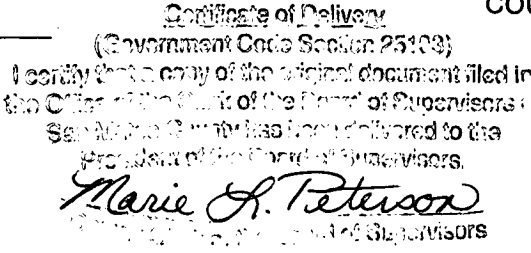 COU
Certificate of Delivery
(Government Code Section 25103)
I certify that a copy of the original document filed in
the Office of the Clerk of the Board of Supervisors
San Mateo County has been delivered to the
President of the Board of Supervisors.
Marie L. Peterson
of Supervisors